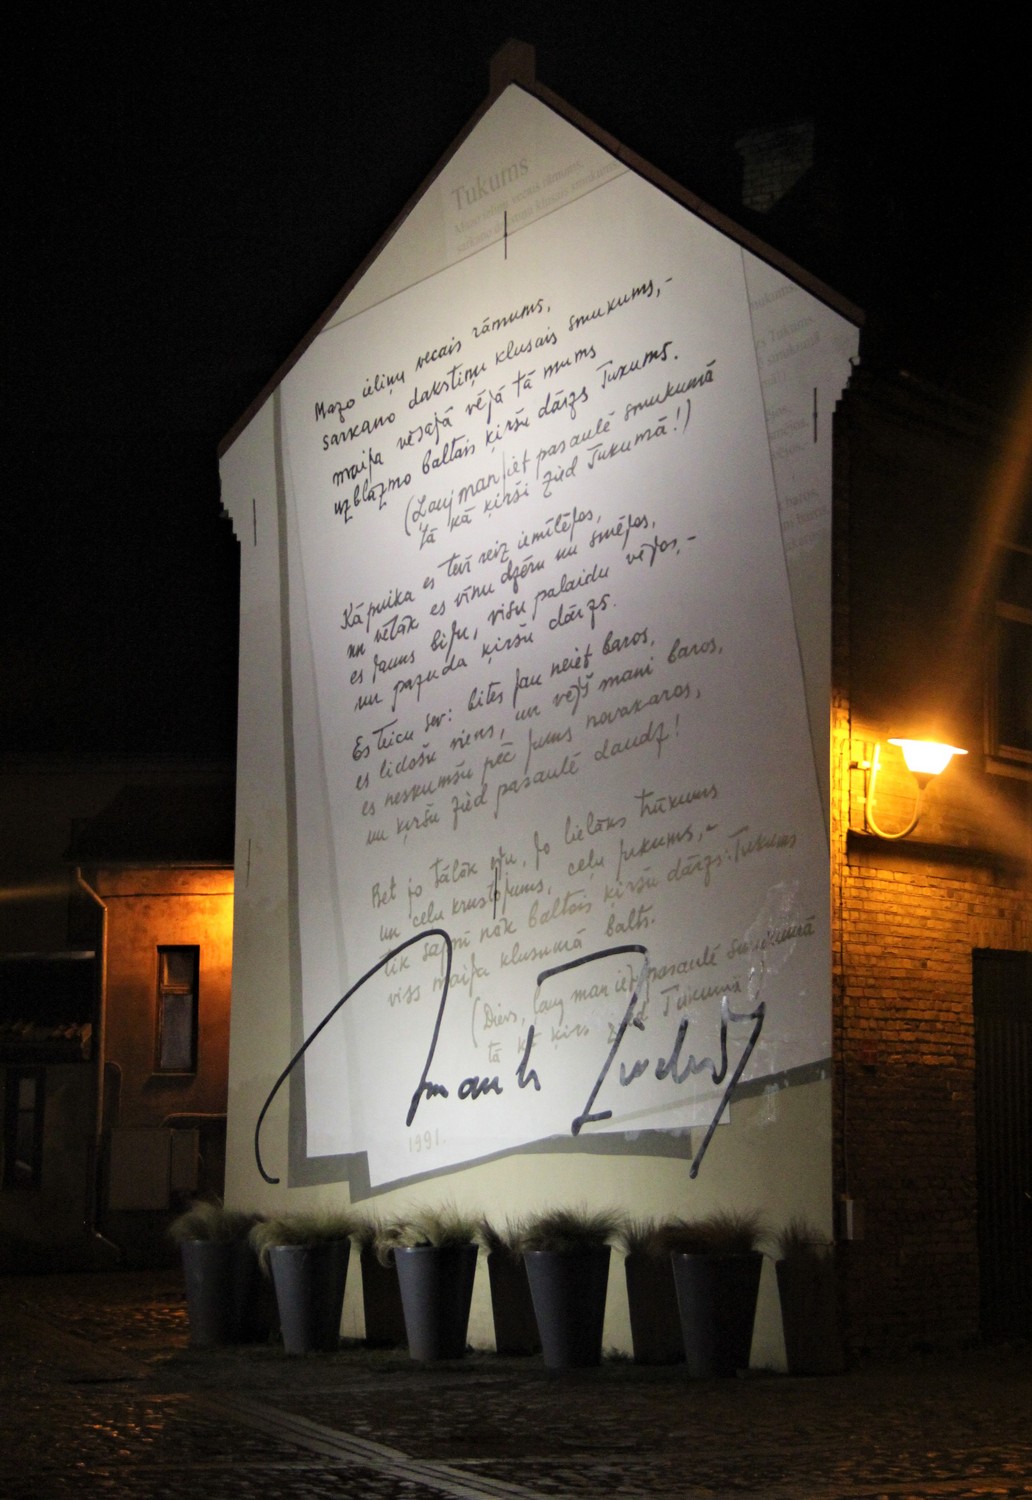 Tukums
Mazo ieliņu vecais rāmums,
sarkano dakstiņu klusais smukums,
Mazo ieliņu vecais rāmums,
sarkano dakstiņu klusais smukums,-
maija vēsajā vējā tā mums
uzblāzmo baltais ķiršu dārzs Tukums.
(Lauj man iet pasaulē smukumā
tā kā ķirši zied Tukumā!)
Kā puika es tevī reiz iemīlējos,
un vēlāk es vīnu dzēru un smējos,
es jauns biju, visu palaidu vējos,-
nu pazuda ķiršu dārzs.
Es teicu sev: bites jau neiet baros,
es lidošu viens, un vējš mani baros,
es neskumšu pēc jums novakaros,
nu ķiršu zied pasaulē daudz!
Bet jo tālāk eju, jo lielāks trūkums
un ceļu krustojums, ceļu jukums,-
tik sapnī nāk baltais ķiršu dārzs: Tukums
viss maija klusumā balts.
(Dievs, lauj man iet pasaulē smukumā
tā kā ķirši zied Tukumā
Imants Ziedonis
1991.